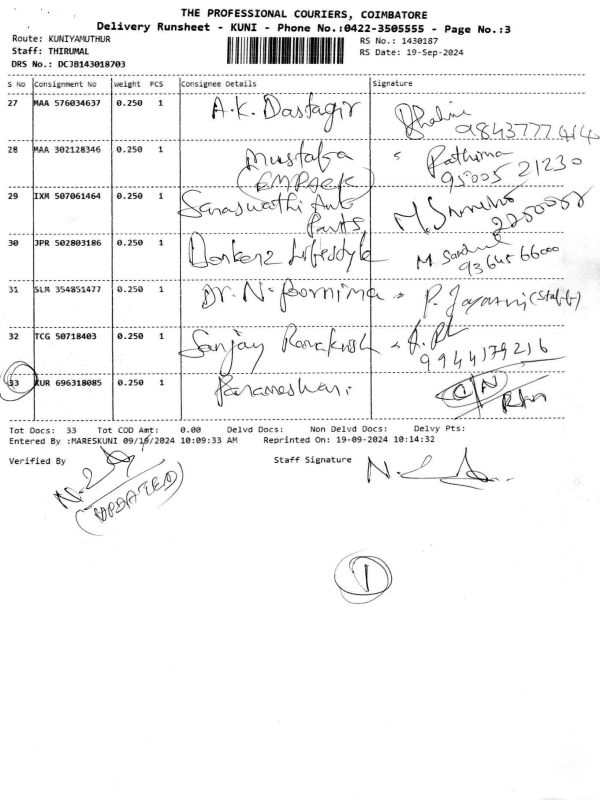 THE PROFESSIONAL COURIERS, COIMBATORE
Delivery Runsheet - KUNI - Phone No.:0422-3505555 - Page No.:3
Route: KUNIYAMUTHUR RS No.: 1430187
Staff: THIRUMAL RS Date: 19-Sep-2024
DRS No.: DCJB143018703
S No Consignment No Weight PCS Consignee Details Signature
27 MAA 576034637 0.250 1 A.K. Dastagir
28 MAA 302128346 0.250 1 Mustafa Fathima
(EMPACK) 95005 21230
29 IXM 507061464 0.250 1 Saraswathi Auto
Parts
30 JPR 502803186 0.250 1 Lifestyle
93645 66000
31 SLM 354851477 0.250 1 Dr. N. Poornima P. Jayanni (Staff)
32 TCG 50718403 0.250 1 Sanjay
9944179216
33 KUR 696318085 0.250 1 Parameshwari C/N
Tot Docs: 33 Tot COD Amt: 0.00 Delvd Docs: Non Delvd Docs: Delvy Pts:
Entered By :MARESKUNI 09/19/2024 10:09:33 AM Reprinted On: 19-09-2024 10:14:32
Verified By Staff Signature
(UPDATED)
1